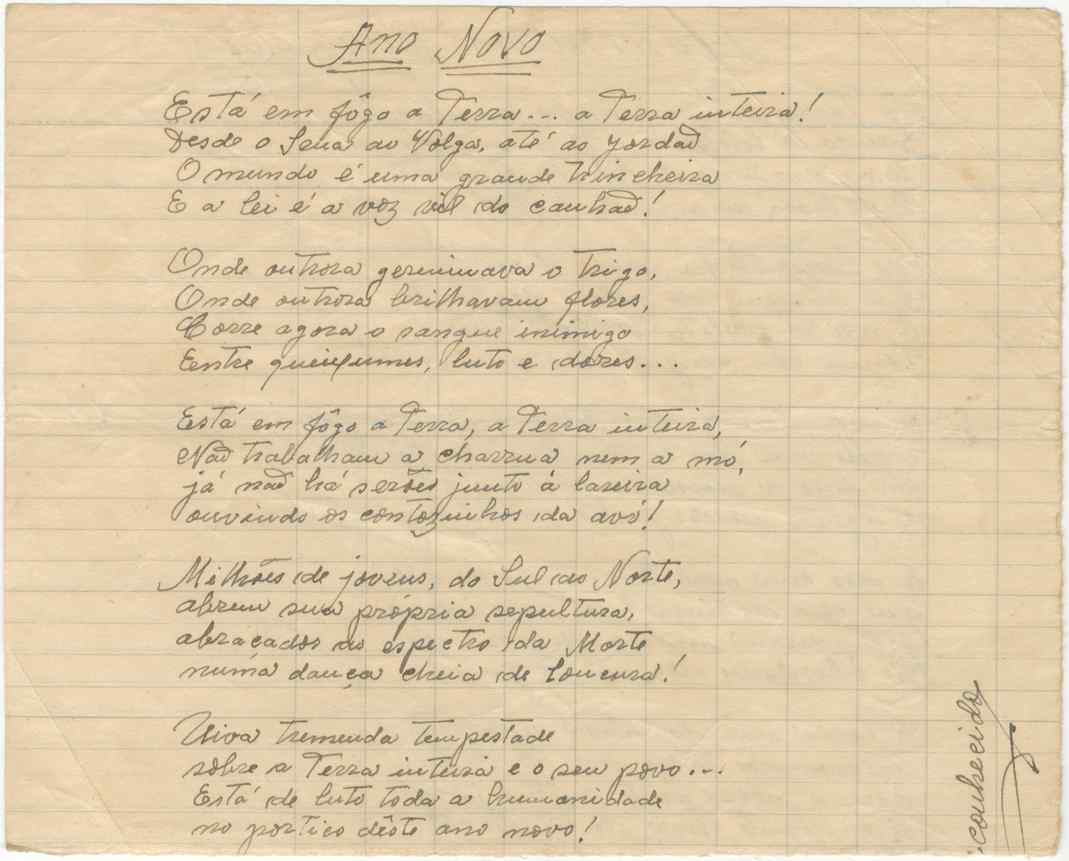 Ano Novo
Está em fôgo a Terra... a Terra inteira!
Desde o Sena ao Volga, até ao Jordão
O mundo é uma grande trincheira
E a lei é a voz vil do canhão!
Onde outrora germinava o trigo,
Onde outrora brilhavam flores,
Corre agora o sangue inimigo
Entre queixumes, luto e dores...
Está em fôgo a Terra, a Terra inteira,
Não trabalham a charrua nem a mó,
já não há serões junto á lareira
ouvindo os contozinhos da avó!
Milhões de jovens, do Sul ao Norte,
abrem sua própria sepultura,
abraçados ao espectro da Morte
numa dança cheia de loucura!
Uiva tremenda tempestade
sôbre a Terra inteira e o seu povo...
Está de luto toda a humanidade
no portico dêste ano novo!
conhecido